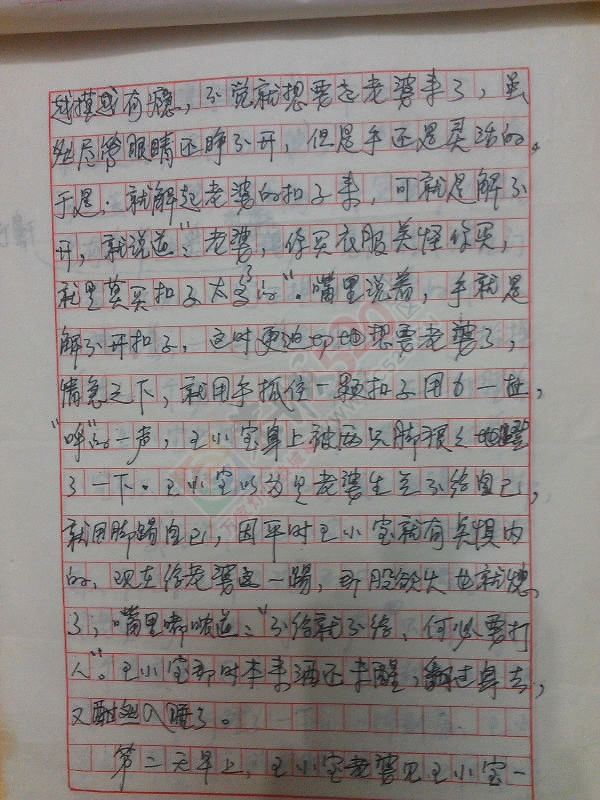 越摸越有瘾，不觉就想要起老婆来了，虽
然尽管眼睛还睁不开，但是手还是灵活的。
于是，就解起老婆的扣子来，可就是解不
开，就说道："老婆，你买衣服美怪你买，
就是莫买扣子太多了的"。嘴里说着，手就是
解不开扣子，这时更迫切地想要老婆了，
情急之下，就用手抓住一颗扣子用力一扯，
"呼"的一声，王小宝身上被两只脚狠狠地蹬
了一下。王小宝以为是老婆生气不给自己，
就用脚踢自己，因平时王小宝就有点惧内
的，现在给老婆这一踢，那股欲火也就熄
了，嘴里嘟哝道："不给就不给，何必要打
人"。王小宝那时本来酒还未醒，翻过身去，
又酣然入睡了。
第二天早上，王小宝老婆见王小宝一